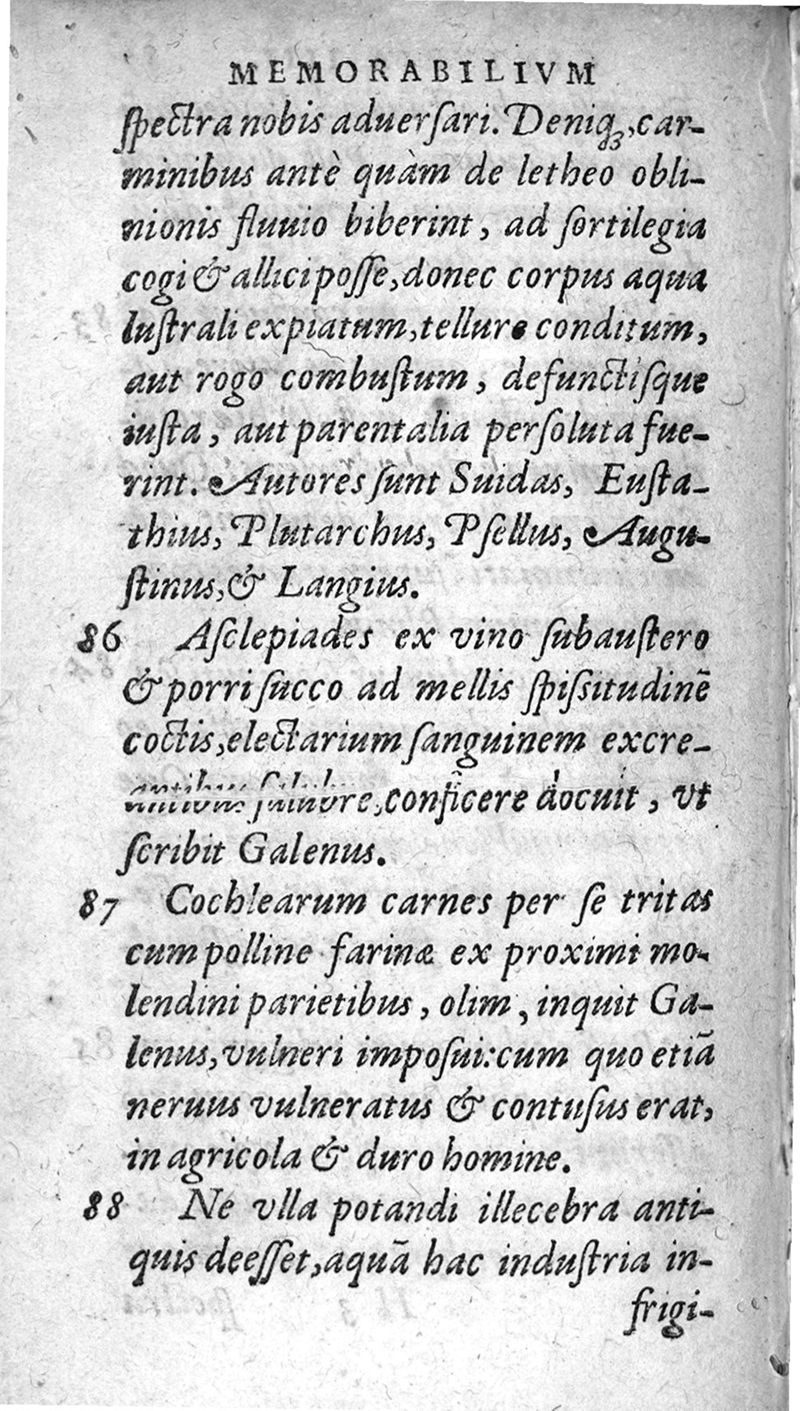 MEMORABILIVM
ſpectra nobis aduerſari. Deniq;, car-
minibus antè quàm de letheo obli-
nionis fluuio biberint, ad ſortilegia
cogi & allici poſſe, donec corpus aqua
luſtrali expiatum, tellure conditum,
aut rogo combuſtum, defunctiſque
iuſta, aut parentalia perſoluta fue-
rint. Autores ſunt Suidas, Euſta-
thius, Plutarchus, Pſellus, Augu-
ſtinus, & Langius.
86 Aſclepiades ex vino ſubauſtero
& porri ſucco ad mellis ſpiſsitudinē
coctis, electarium ſanguinem excre-
conficere docuit, vt
ſcribit Galenus.
87 Cochlearum carnes per ſe tritas
cum polline farinæ ex proximi mo-
lendini parietibus, olim, inquit Ga-
lenus, vulneri impoſui: cum quo etiā
neruus vulneratus & contuſus erat,
in agricola & duro homine.
88 Ne vlla potandi illecebra anti-
quis deeſſet, aquā hac induſtria in-
frigi-